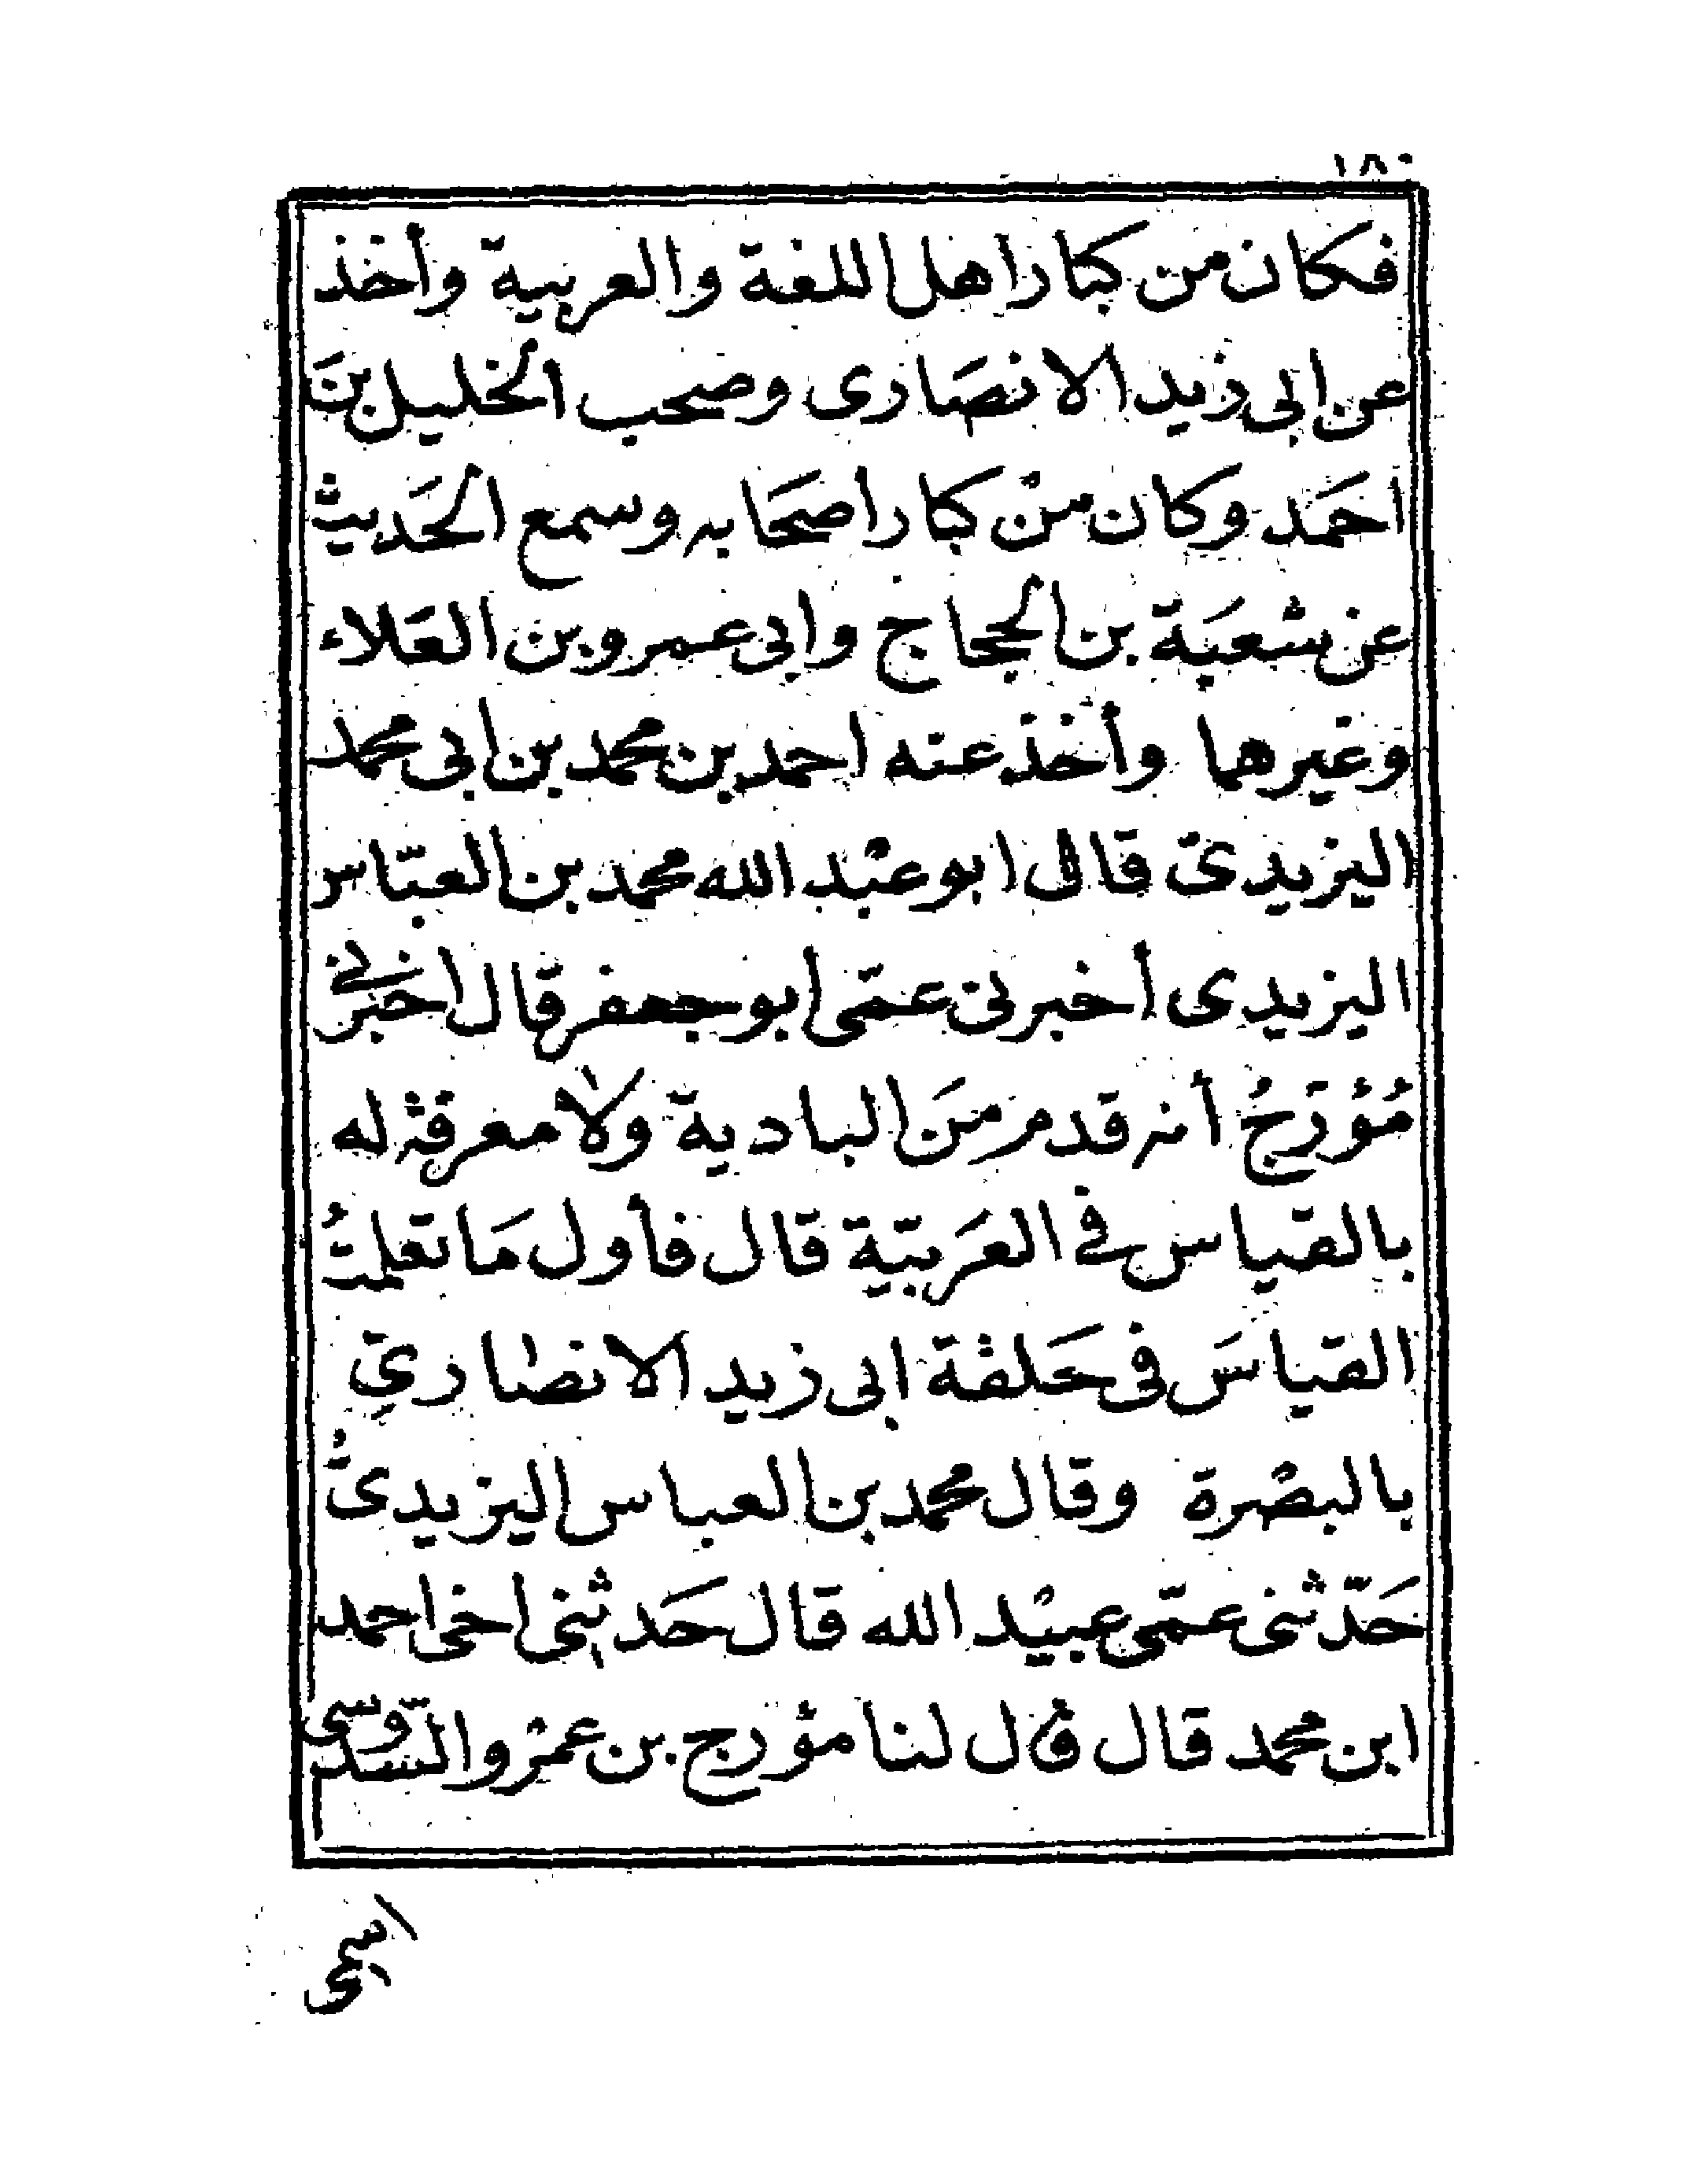 ١٨٠
فكان من كبار اهل اللغة والعربية وأخذ
عن ابى زيد الانصَارى وصحب الخليل بنَ
احمَد وكان منْ كبار اصحَابه وسمع الحَديث
عن شعبَة بن الحجاج وابى عمرو بن العَلاء
وغيرهما وأخذ عنه احمد بن محمد بن ابى محمد
اليزيدىّ قال ابو عبْد الله محمد بن العبّاس
اليزيدى أخبرنى عمّى ابو جعفر قال اخبرنى
مُؤرّجُ أنه قدم منَ البادية ولا معرفة له
بالقياس فى العَربيّة قال فأول مَا تعلمتُ
القياسَ فى حَلقة ابى زيد الانصارىّ
بالبصْرة وقال محمد بن العباس اليزيدىُّ
حَدّثنى عمّى عبيْد الله قال حَدثنى اخى احمد
ابن محمد قال قال لنا مؤرج بن عمْرو السّدوسى
اسمى